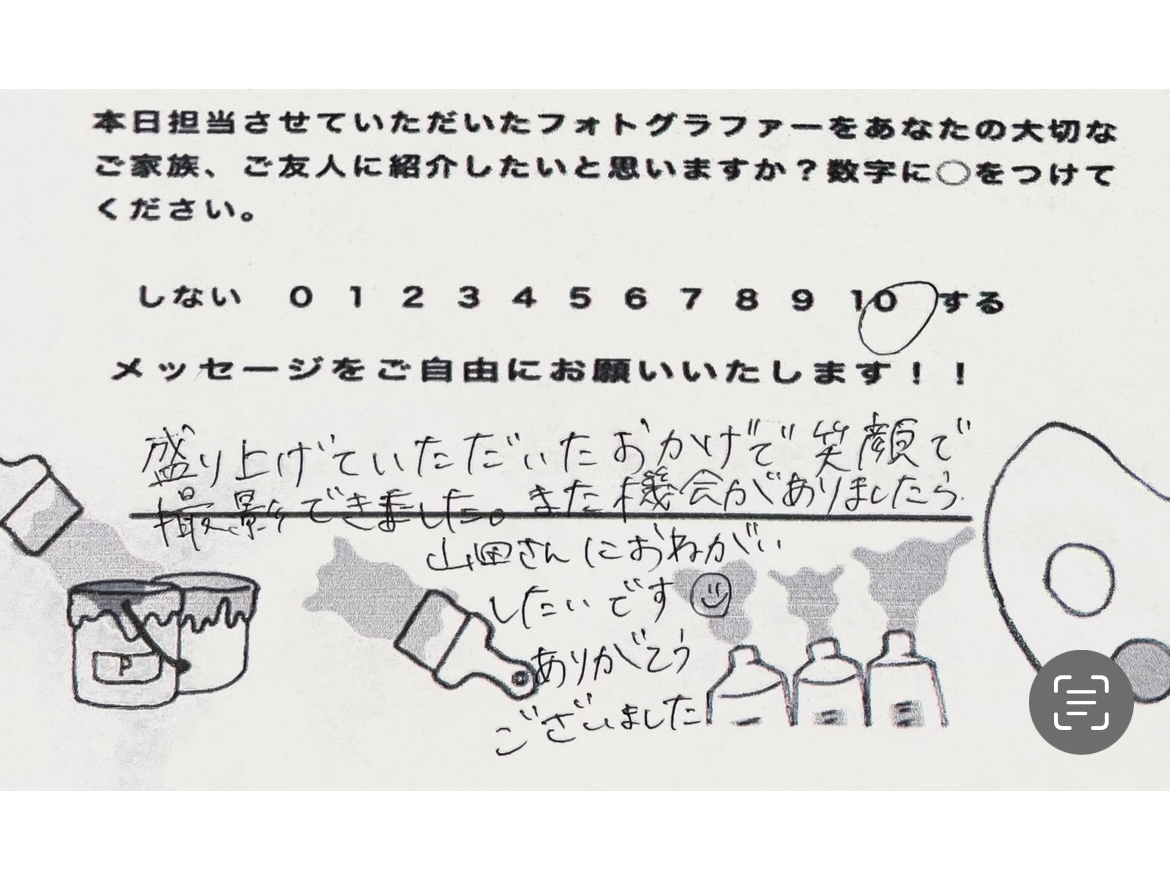 本日担当させていただいたフォトグラファーをあなたの大切な
ご家族、ご友人に紹介したいと思いますか？数字に〇をつけて
ください。
しない 0 1 2 3 4 5 6 7 8 9 10 する
メッセージをご自由にお願いいたします！！
盛り上げていただいたおかげで笑顔で
撮影できました。また機会がありましたら
山田さんにおねがい
したいです
ありがとう
ございました
P